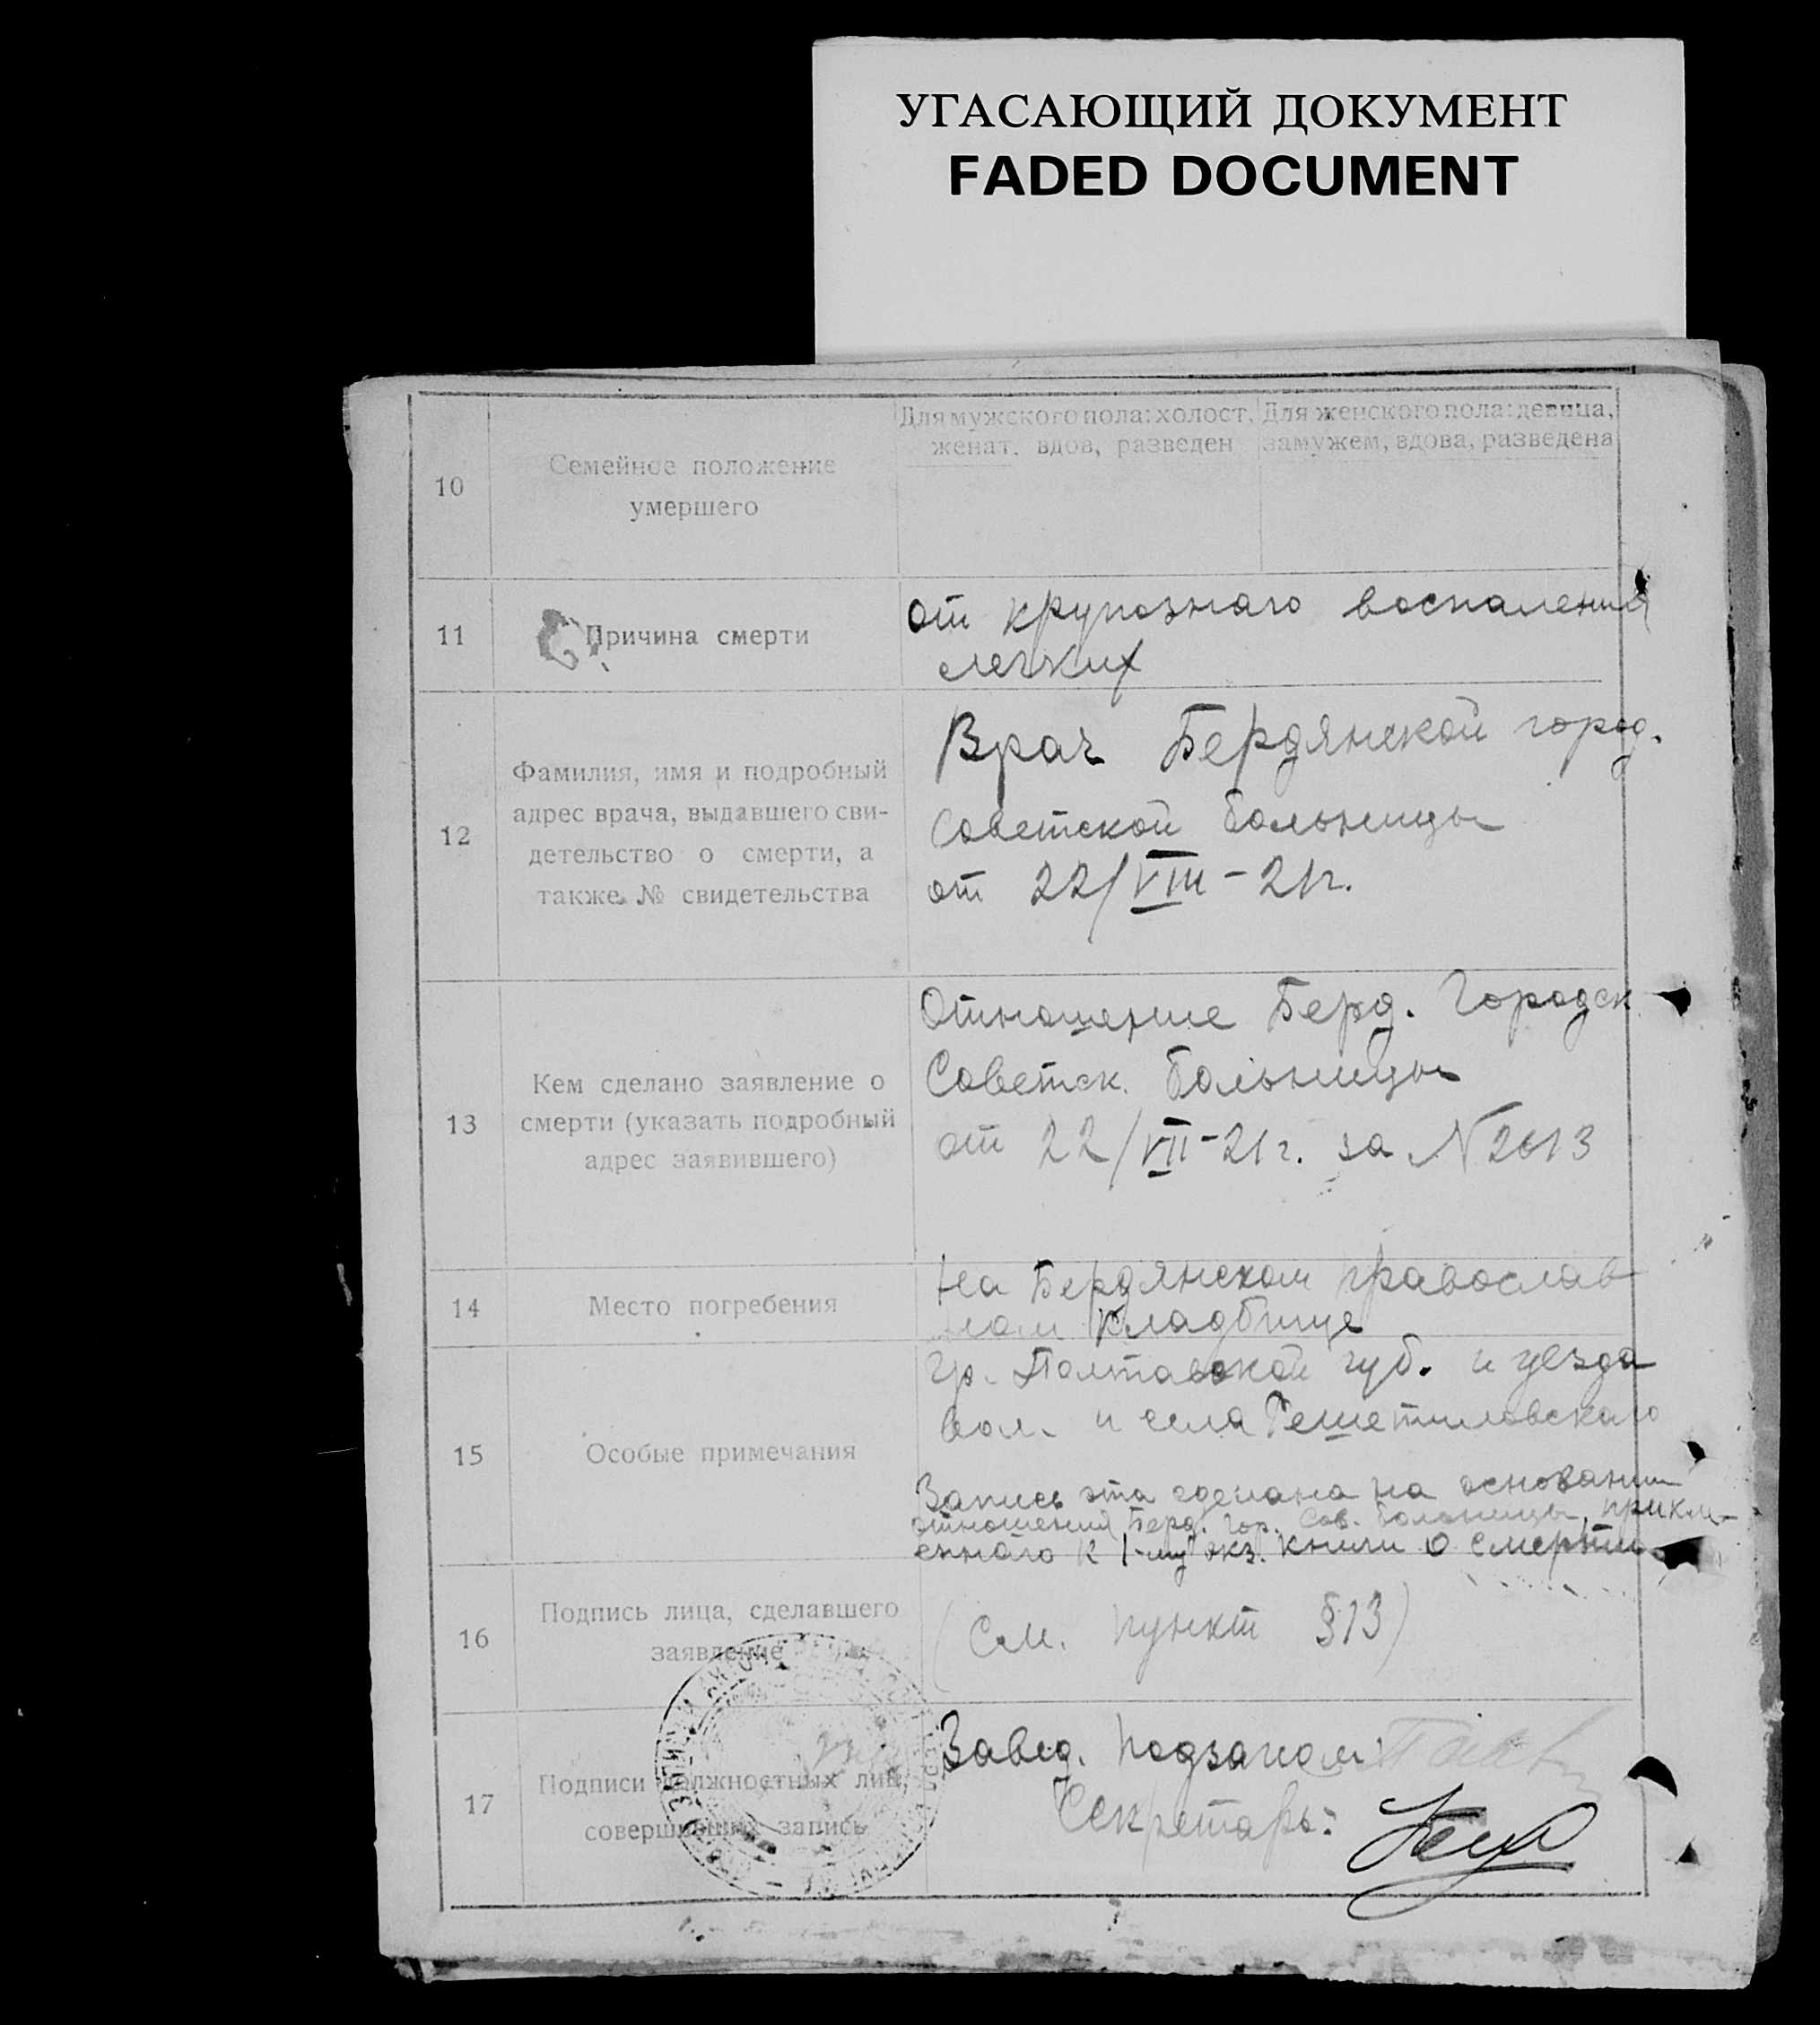 УГАСАЮЩИЙ ДОКУМЕНТ
FADED DOCUMENT
10
Семейное положение
умершего
Для мужского пола: холост,
женат, вдов, разведен
Для женского пола: девица,
замужем, вдова, разведена
11
Причина смерти
от крупознаго воспаления
легких
12
Фамилия, имя и подробный
адрес врача, выдавшего сви-
детельство о смерти, а
также № свидетельства
Врач Бердянской город.
Советской больницы
от 22/VIII-21г.
13
Кем сделано заявление о
смерти (указать подробный
адрес заявившего)
Отношение Берд. Городск
Советск. Больницы
от 22/VII-21г. за N 2613
14
Место погребения
На Бердянском православ
ном кладбище
15
Особые примечания
гр. Полтавской губ. и уезда
вол. и села Решетиловскаго
Запись эта сделана на основании
отношения Берд. Гор. Сов. больницы, прикле-
еннаго к 1-му экз. книги о смерти
16
Подпись лица, сделавшего
заявление
(См. пункт §13)
17
Подписи должностных лиц,
совершивших запись
Завед. Подзагсом:
Секретарь: